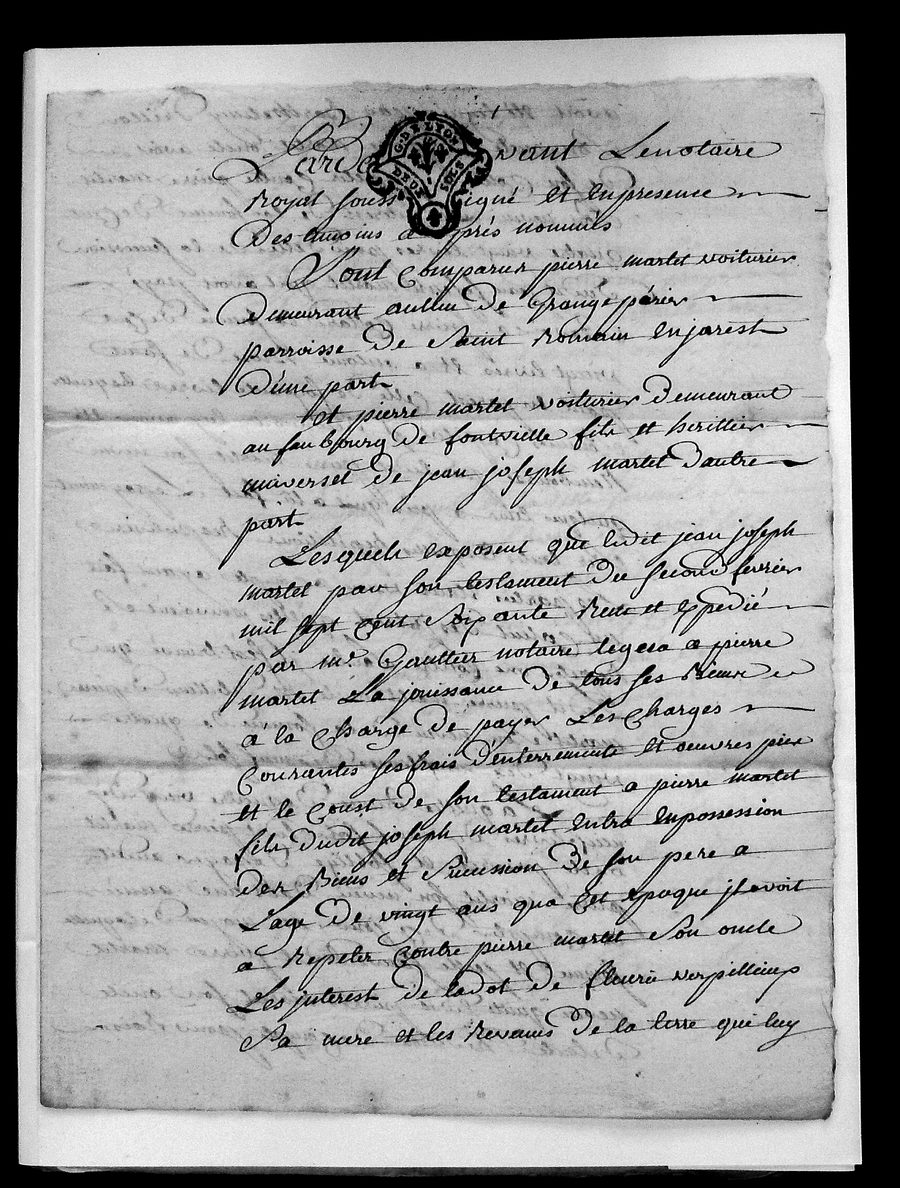 G. DE LYON
DEUX SOLS
4
Parde vant Lenotaire
Royal souss igné et enpresence
Des temoins a prés nommés
Sont Comparus pierre martet voiturier
Demeurant aulieu de Grange périer
parroisse de Saint Romain enjarest
d'une part
Et pierre martet voiturier Demeurant
au faubourg de fontvielle fils et heritier
universel de jean joseph martet d'autre
part
Lesquels exposent que ledit jean joseph
martet par son testament du second fevrier
mil sept cent soixante Reçu et expedié
par me. Gaultier notaire legua a pierre
martet La jouissance de tous ses Biens
à la Charge de payer Les Charges
Courantes ses frais d'enterrements et oeuvres pies
et le coust de son testament a pierre martet
fils dudit joseph martet entra enpossession
des Biens et Succession de son pere a
L'age de vingt ans qua cet epoque jl avoit
a Repeter contre pierre martet Son oncle
Les jnterest de ladot de fleurie verpilleux
Sa mere et les Revenus de la terre que luy